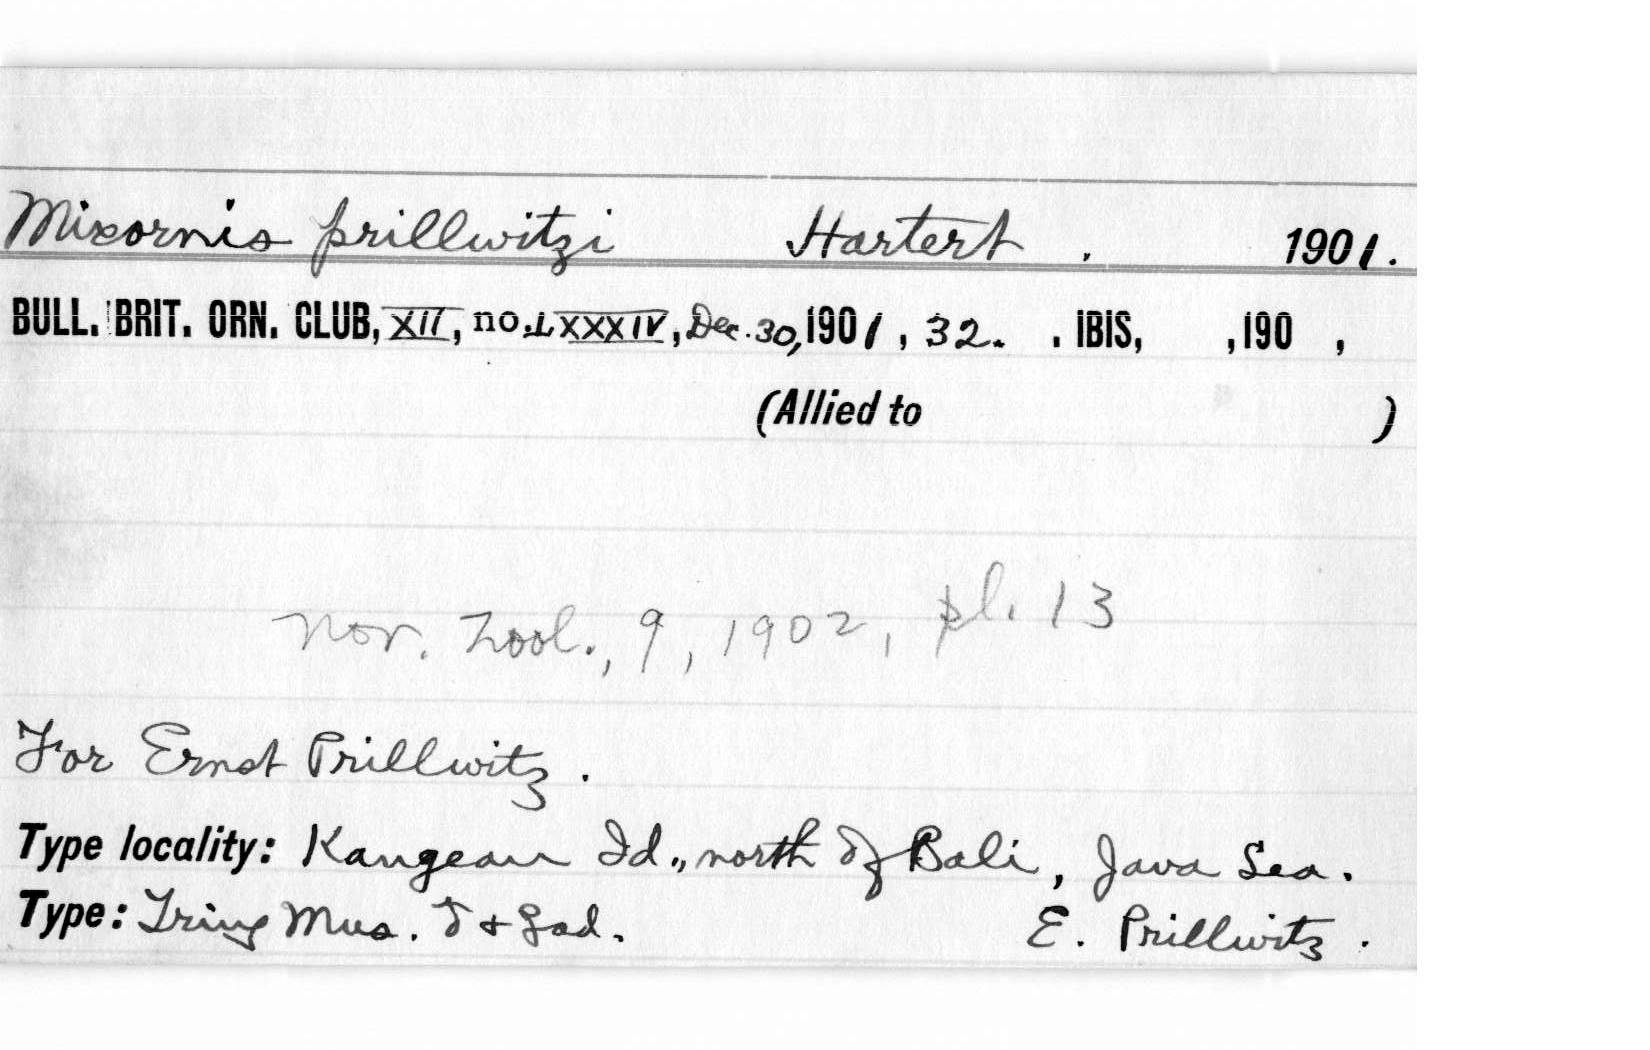 Mixornis prillwitzi Hartert . 1901.
BULL. BRIT. ORN. CLUB, XII, no. LXXXIV, Dec. 30, 1901, 32. . IBIS, ,190 ,
(Allied to )
Nov. Zool., 9, 1902, pl. 13
For Ernst Prillwitz.
Type locality: Kangean Id., north of Bali, Java Sea.
Type: Tring Mus. E. Prillwitz.